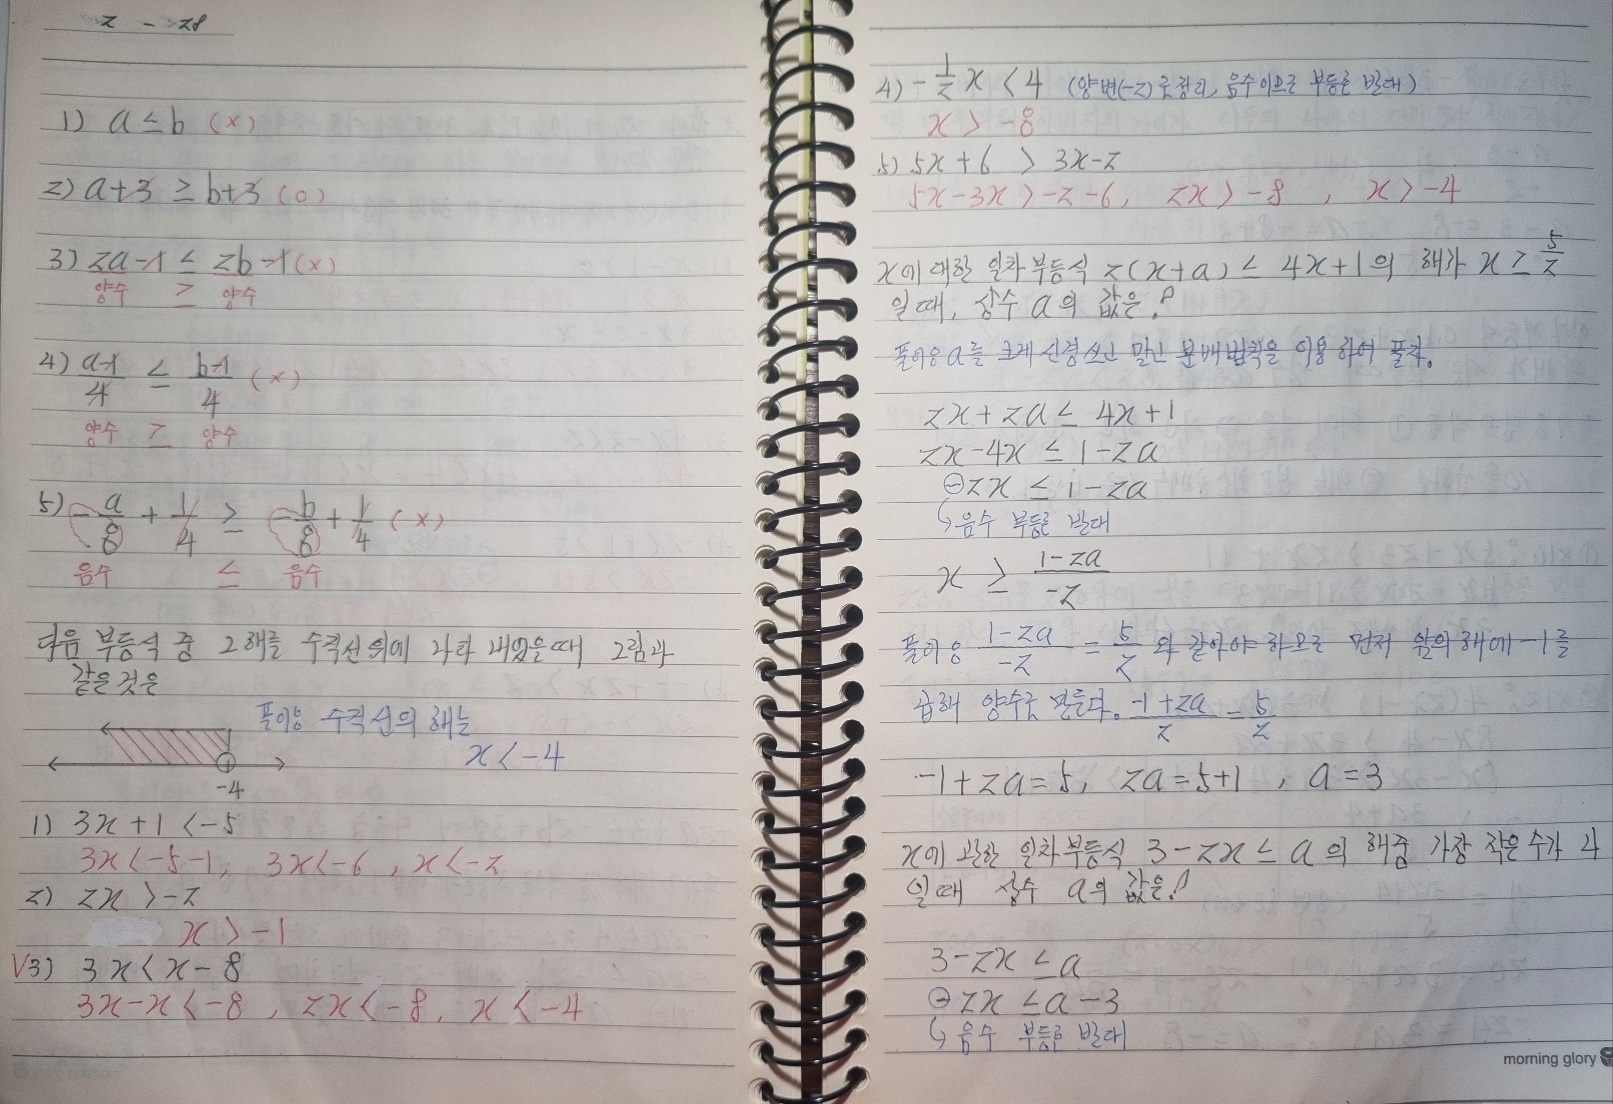 2 - 28
1) a ≤ b (x)
2) a+3 ≥ b+3 (o)
3) 2a-1 ≤ 2b-1 (x)
양수 ≥ 양수
4) (a-1)/4 ≤ (b-1)/4 (x)
양수 ≥ 양수
5) -a/8 + 1/4 ≥ -b/8 + 1/4 (x)
음수 ≤ 음수
다음 부등식 중 그 해를 수직선 위에 나타 내었을때 그림과
같은 것은
풀이응 수직선의 해는
x < -4
-4
1) 3x+1 < -5
3x < -5-1, 3x < -6, x < -2
2) 2x > -2
x > -1
V3) 3x < x-8
3x-x < -8, 2x < -8, x < -4
4) -1/2 x < 4 (양변(-2)로 정리, 음수이므로 부등호 반대)
x > -8
5) 5x+6 > 3x-2
5x-3x > -2-6, 2x > -8, x > -4
x에 대한 일차부등식 2(x+a) ≤ 4x+1의 해가 x ≥ 5/2
일 때, 상수 a의 값은?
풀이응 a를 크게 신경쓰진 말난 분배법칙을 이용하여 풀자.
2x+2a ≤ 4x+1
2x-4x ≤ 1-2a
⊖2x ≤ 1-2a
↳음수 부등호 반대
x ≥ (1-2a)/-2
풀이응 (1-2a)/-2 = 5/2 와 같아야 하므로 먼저 앞의 해에 -1를
곱해 양수로 만든다. (-1+2a)/2 = 5/2
-1+2a=5, 2a=5+1, a=3
x에 관한 일차부등식 3-2x ≤ a의 해중 가장 작은 수가 4
일때 상수 a의 값은?
3-2x ≤ a
⊖2x ≤ a-3
↳음수 부등호 반대
morning glory